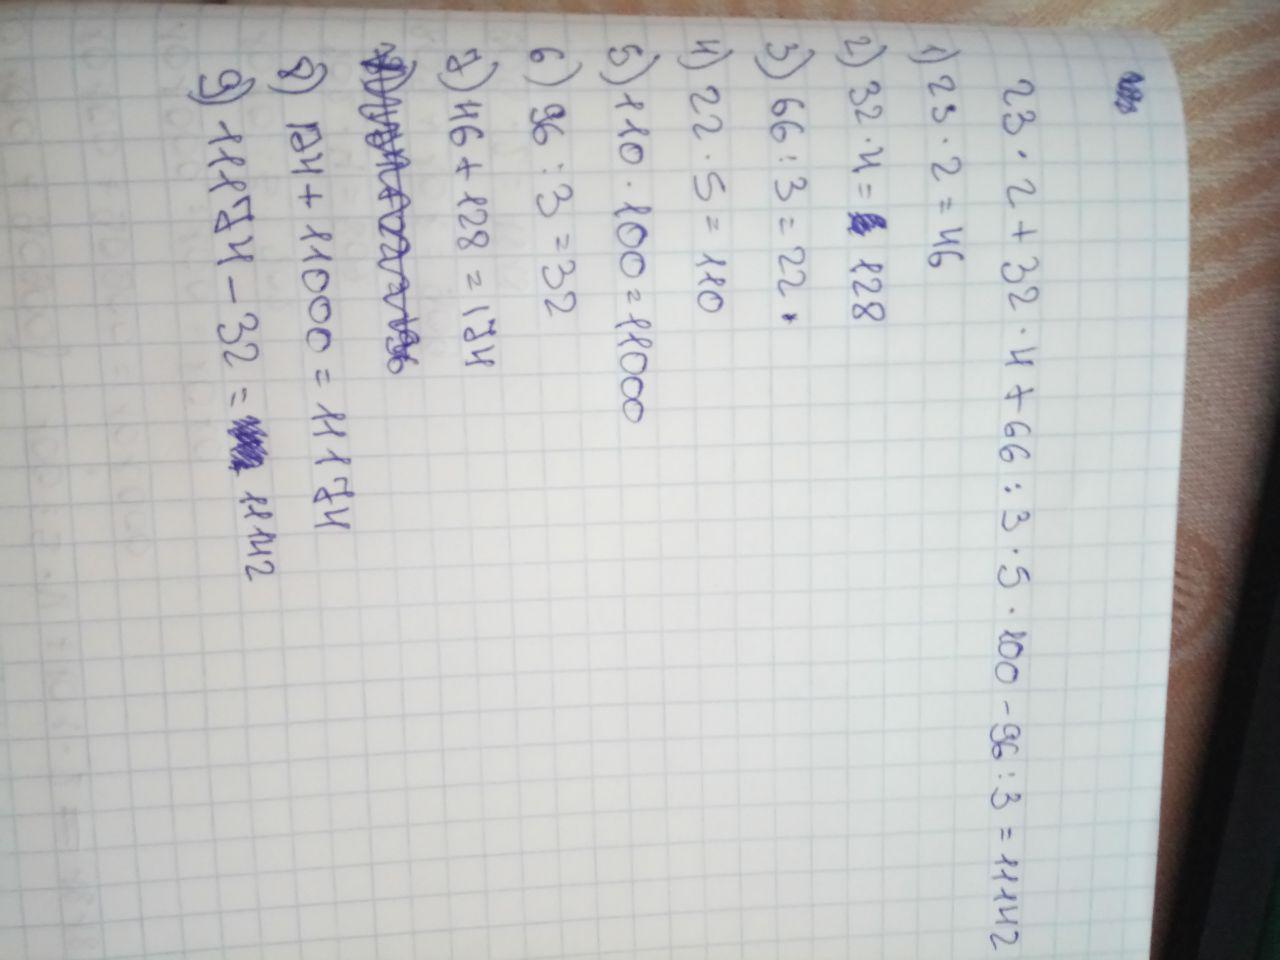 23 · 2 + 32 · 4 + 66 : 3 · 5 · 100 - 96 : 3 = 11142
1) 23 · 2 = 46
2) 32 · 4 = 128
3) 66 : 3 = 22
4) 22 · 5 = 110
5) 110 · 100 = 11000
6) 96 : 3 = 32
7) 46 + 128 = 174
8) 174 + 11000 = 11174
9) 11174 - 32 = 11142